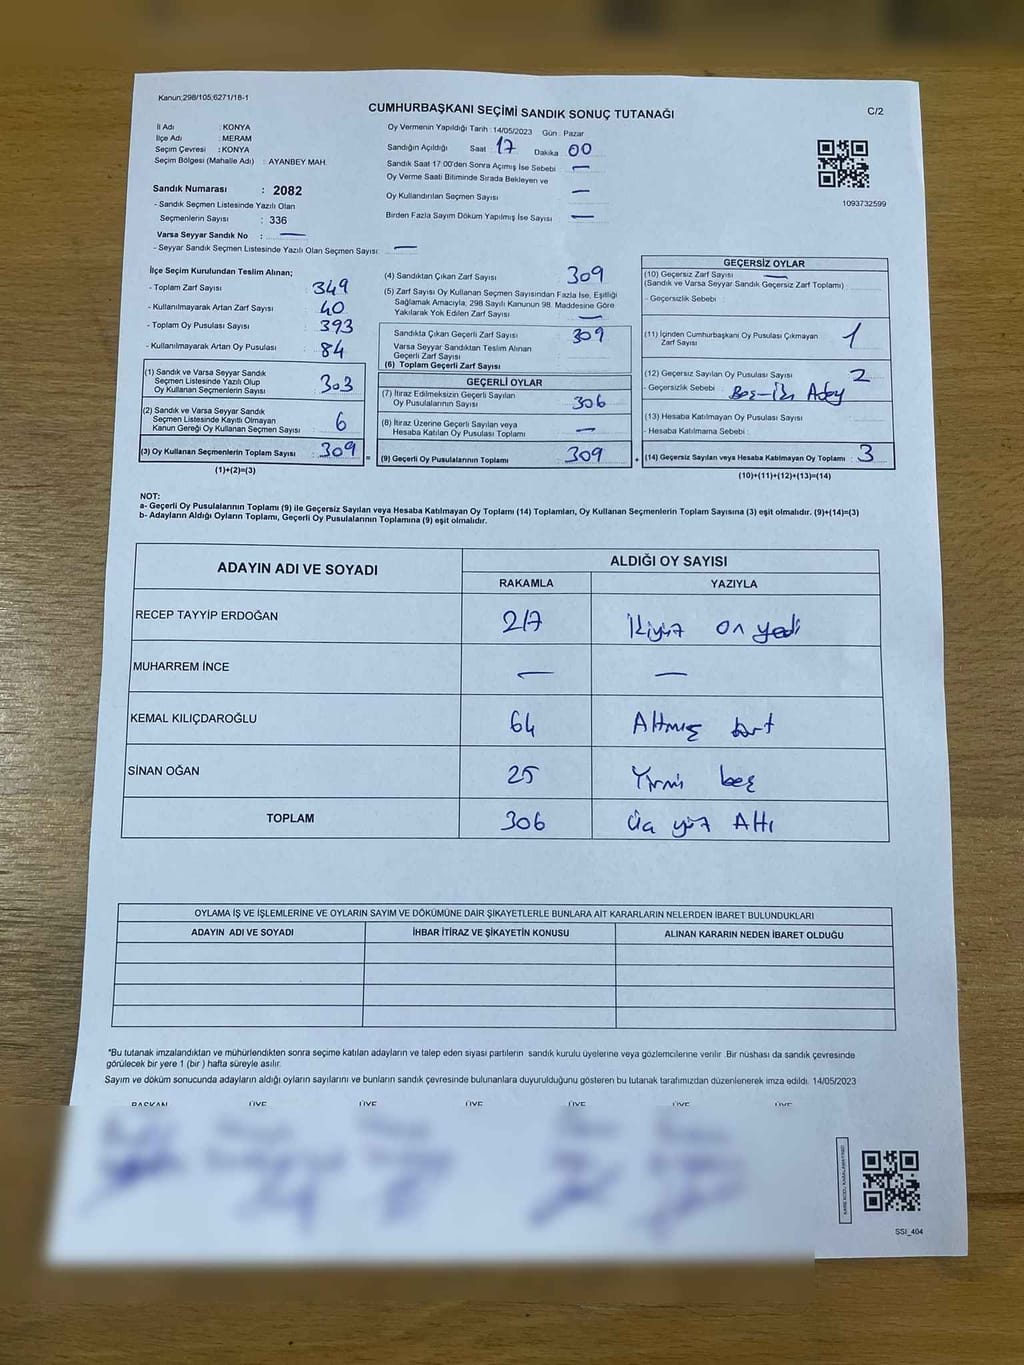 Kanun:298/105,6271/18-1
CUMHURBAŞKANI SEÇİMİ SANDIK SONUÇ TUTANAĞI
C/2
İl Adı : KONYA
İlçe Adı : MERAM
Seçim Çevresi : KONYA
Seçim Bölgesi (Mahalle Adı) : AYANBEY MAH.
Sandık Numarası : 2082
- Sandık Seçmen Listesinde Yazılı Olan
Seçmenlerin Sayısı : 336
Varsa Seyyar Sandık No : —
- Seyyar Sandık Seçmen Listesinde Yazılı Olan Seçmen Sayısı: —
Oy Vermenin Yapıldığı Tarih : 14/05/2023 Gün : Pazar
Sandığın Açıldığı Saat 17 Dakika 00
Sandık Saat 17.00'den Sonra Açımış İse Sebebi : —
Oy Verme Saati Bitiminde Sırada Bekleyen ve
Oy Kullandırılan Seçmen Sayısı : —
Birden Fazla Sayım Döküm Yapılmış İse Sayısı : —
1093732599
İlçe Seçim Kurulundan Teslim Alınan;
- Toplam Zarf Sayısı : 349
- Kullanılmayarak Artan Zarf Sayısı : 40
- Toplam Oy Pusulası Sayısı : 393
- Kullanılmayarak Artan Oy Pusulası : 84
(1) Sandık ve Varsa Seyyar Sandık
Seçmen Listesinde Yazılı Olup
Oy Kullanan Seçmenlerin Sayısı : 303
(2) Sandık ve Varsa Seyyar Sandık
Seçmen Listesinde Kayıtlı Olmayan
Kanun Gereği Oy Kullanan Seçmen Sayısı : 6
(3) Oy Kullanan Seçmenlerin Toplam Sayısı : 309
(1)+(2)=(3)
(4) Sandıktan Çıkan Zarf Sayısı : 309
(5) Zarf Sayısı Oy Kullanan Seçmen Sayısından Fazla İse, Eşitliği
Sağlamak Amacıyla; 298 Sayılı Kanunun 98. Maddesine Göre
Yakılarak Yok Edilen Zarf Sayısı : —
Sandıkta Çıkan Geçerli Zarf Sayısı : 309
Varsa Seyyar Sandıktan Teslim Alınan
Geçerli Zarf Sayısı :
(6) Toplam Geçerli Zarf Sayısı :
GEÇERLİ OYLAR
(7) İtiraz Edilmeksizin Geçerli Sayılan
Oy Pusulalarının Sayısı : 306
(8) İtiraz Üzerine Geçerli Sayılan veya
Hesaba Katılan Oy Pusulası Toplamı : —
(9) Geçerli Oy Pusulalarının Toplamı : 309
GEÇERSİZ OYLAR
(10) Geçersiz Zarf Sayısı : —
(Sandık ve Varsa Seyyar Sandık Geçersiz Zarf Toplamı)
- Geçersizlik Sebebi :
(11) İçinden Cumhurbaşkanı Oy Pusulası Çıkmayan
Zarf Sayısı : 1
(12) Geçersiz Sayılan Oy Pusulası Sayısı : 2
- Geçersizlik Sebebi : Boş-İki Aday
(13) Hesaba Katılmayan Oy Pusulası Sayısı :
- Hesaba Katılmama Sebebi :
(14) Geçersiz Sayılan veya Hesaba Katılmayan Oy Toplamı : 3
(10)+(11)+(12)+(13)=(14)
NOT:
a- Geçerli Oy Pusulalarının Toplamı (9) ile Geçersiz Sayılan veya Hesaba Katılmayan Oy Toplamı (14) Toplamları, Oy Kullanan Seçmenlerin Toplam Sayısına (3) eşit olmalıdır. (9)+(14)=(3)
b- Adayların Aldığı Oyların Toplamı, Geçerli Oy Pusulalarının Toplamına (9) eşit olmalıdır.
ADAYIN ADI VE SOYADI
ALDIĞI OY SAYISI
RAKAMLA YAZIYLA
RECEP TAYYİP ERDOĞAN 217 İkiyüz on yedi
MUHARREM İNCE — —
KEMAL KILIÇDAROĞLU 64 Altmış dört
SİNAN OĞAN 25 Yirmi beş
TOPLAM 306 Üç yüz Altı
OYLAMA İŞ VE İŞLEMLERİNE VE OYLARIN SAYIM VE DÖKÜMÜNE DAİR ŞİKAYETLERLE BUNLARA AİT KARARLARIN NELERDEN İBARET BULUNDUKLARI
ADAYIN ADI VE SOYADI İHBAR İTİRAZ VE ŞİKAYETİN KONUSU ALINAN KARARIN NEDEN İBARET OLDUĞU
*Bu tutanak imzalandıktan ve mühürlendikten sonra seçime katılan adayların ve talep eden siyasi partilerin sandık kurulu üyelerine veya gözlemcilerine verilir .Bir nüshası da sandık çevresinde
görülecek bir yere 1 (bir ) hafta süreyle asılır.
Sayım ve döküm sonucunda adayların aldığı oyların sayılarını ve bunların sandık çevresinde bulunanlara duyurulduğunu gösteren bu tutanak tarafımızdan düzenlenerek imza edildi. 14/05/2023
BAŞKAN ÜYE ÜYE ÜYE ÜYE ÜYE ÜYE
SSI_404